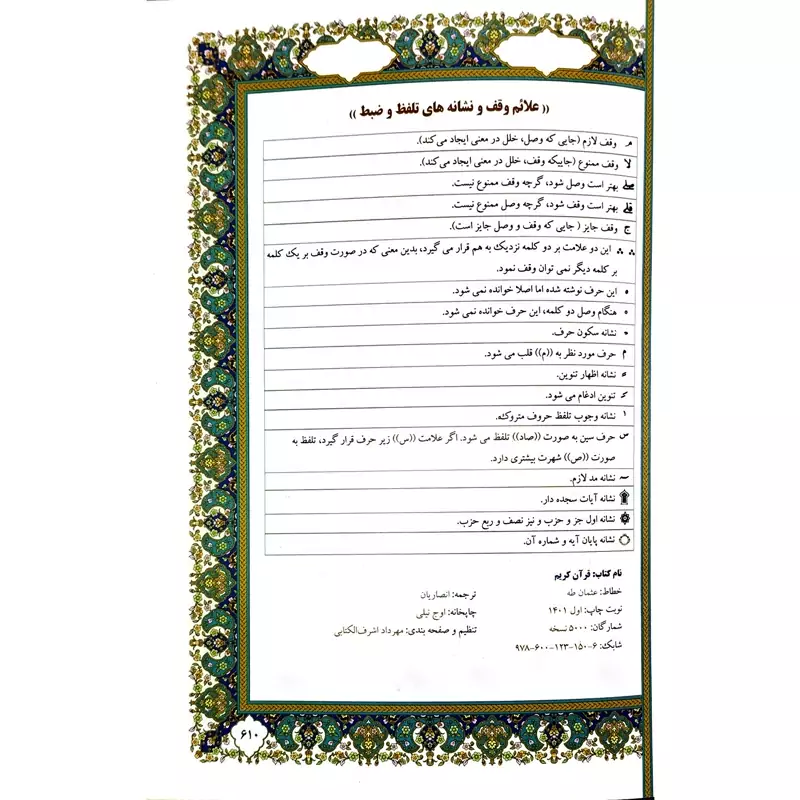 (( علائم وقف و نشانه های تلفظ و ضبط ))
م وقف لازم (جایی که وصل، خلل در معنی ایجاد می‌کند).
لا وقف ممنوع (جاییکه وقف، خلل در معنی ایجاد می‌کند).
صلے بهتر است وصل شود، گرچه وقف ممنوع نیست.
قلے بهتر است وقف شود، گرچه وصل ممنوع نیست.
ج وقف جایز ( جایی که وقف و وصل جایز است).
∴ ∴ این دو علامت بر دو کلمه نزدیک به هم قرار می گیرد، بدین معنی که در صورت وقف بر یک کلمه
بر کلمه دیگر نمی توان وقف نمود.
این حرف نوشته شده اما اصلا خوانده نمی شود.
هنگام وصل دو کلمه، این حرف خوانده نمی شود.
نشانه سکون حرف.
م حرف مورد نظر به ((م)) قلب می شود.
نشانه اظهار تنوین.
تنوین ادغام می شود.
ا نشانه وجوب تلفظ حروف متروکه.
س حرف سین به صورت ((صاد)) تلفظ می شود. اگر علامت ((س)) زیر حرف قرار گیرد، تلفظ به
صورت ((ص)) شهرت بیشتری دارد.
نشانه مد لازم.
۩ نشانه آیات سجده دار.
۞ نشانه اول جز و حزب و نیز نصف و ربع حزب.
نشانه پایان آیه و شماره آن.
نام کتاب: قرآن کریم
خطاط: عثمان طه ترجمه: انصاریان
نوبت چاپ: اول ۱۴۰۱ چاپخانه: اوج نیلی
شمارگان: ۵۰۰۰ نسخه تنظیم و صفحه بندی: مهرداد اشرف‌الکتابی
شابک: ۶-۱۵۰-۱۲۳-۶۰۰-۹۷۸
۶۱۰